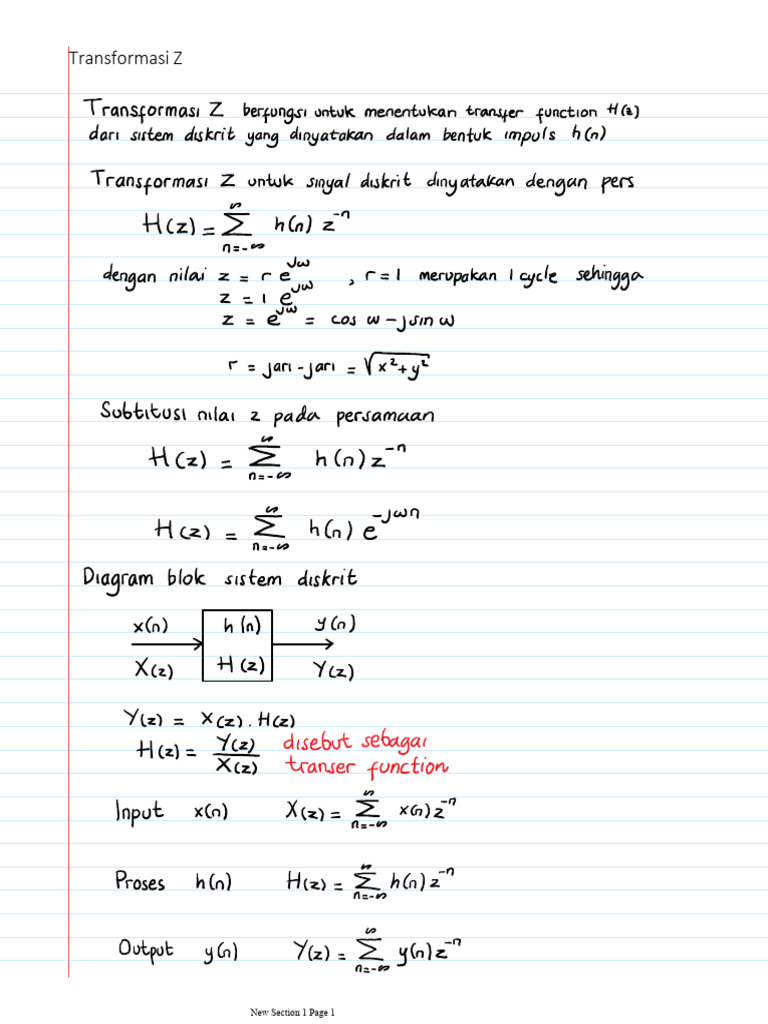 Transformasi Z
Transformasi Z berfungsi untuk menentukan transfer function H(z)
dari sistem diskrit yang dinyatakan dalam bentuk impuls h(n)
Transformasi Z untuk sinyal diskrit dinyatakan dengan pers
H(z) = ∑_{n=-∞}^{∞} h(n) z^{-n}
dengan nilai z = r e^{jω} , r = 1 merupakan 1 cycle sehingga
z = 1 e^{jω}
z = e^{jω} = cos ω - j sin ω
r = jari-jari = √(x²+y²)
Subtitusi nilai z pada persamaan
H(z) = ∑_{n=-∞}^{∞} h(n) z^{-n}
H(z) = ∑_{n=-∞}^{∞} h(n) e^{-jωn}
Diagram blok sistem diskrit
x(n) h(n) y(n)
X(z) H(z) Y(z)
Y(z) = X(z) . H(z)
H(z) = Y(z)/X(z) disebut sebagai
transer function
Input x(n) X(z) = ∑_{n=-∞}^{∞} x(n) z^{-n}
Proses h(n) H(z) = ∑_{n=-∞}^{∞} h(n) z^{-n}
Output y(n) Y(z) = ∑_{n=-∞}^{∞} y(n) z^{-n}
New Section 1 Page 1